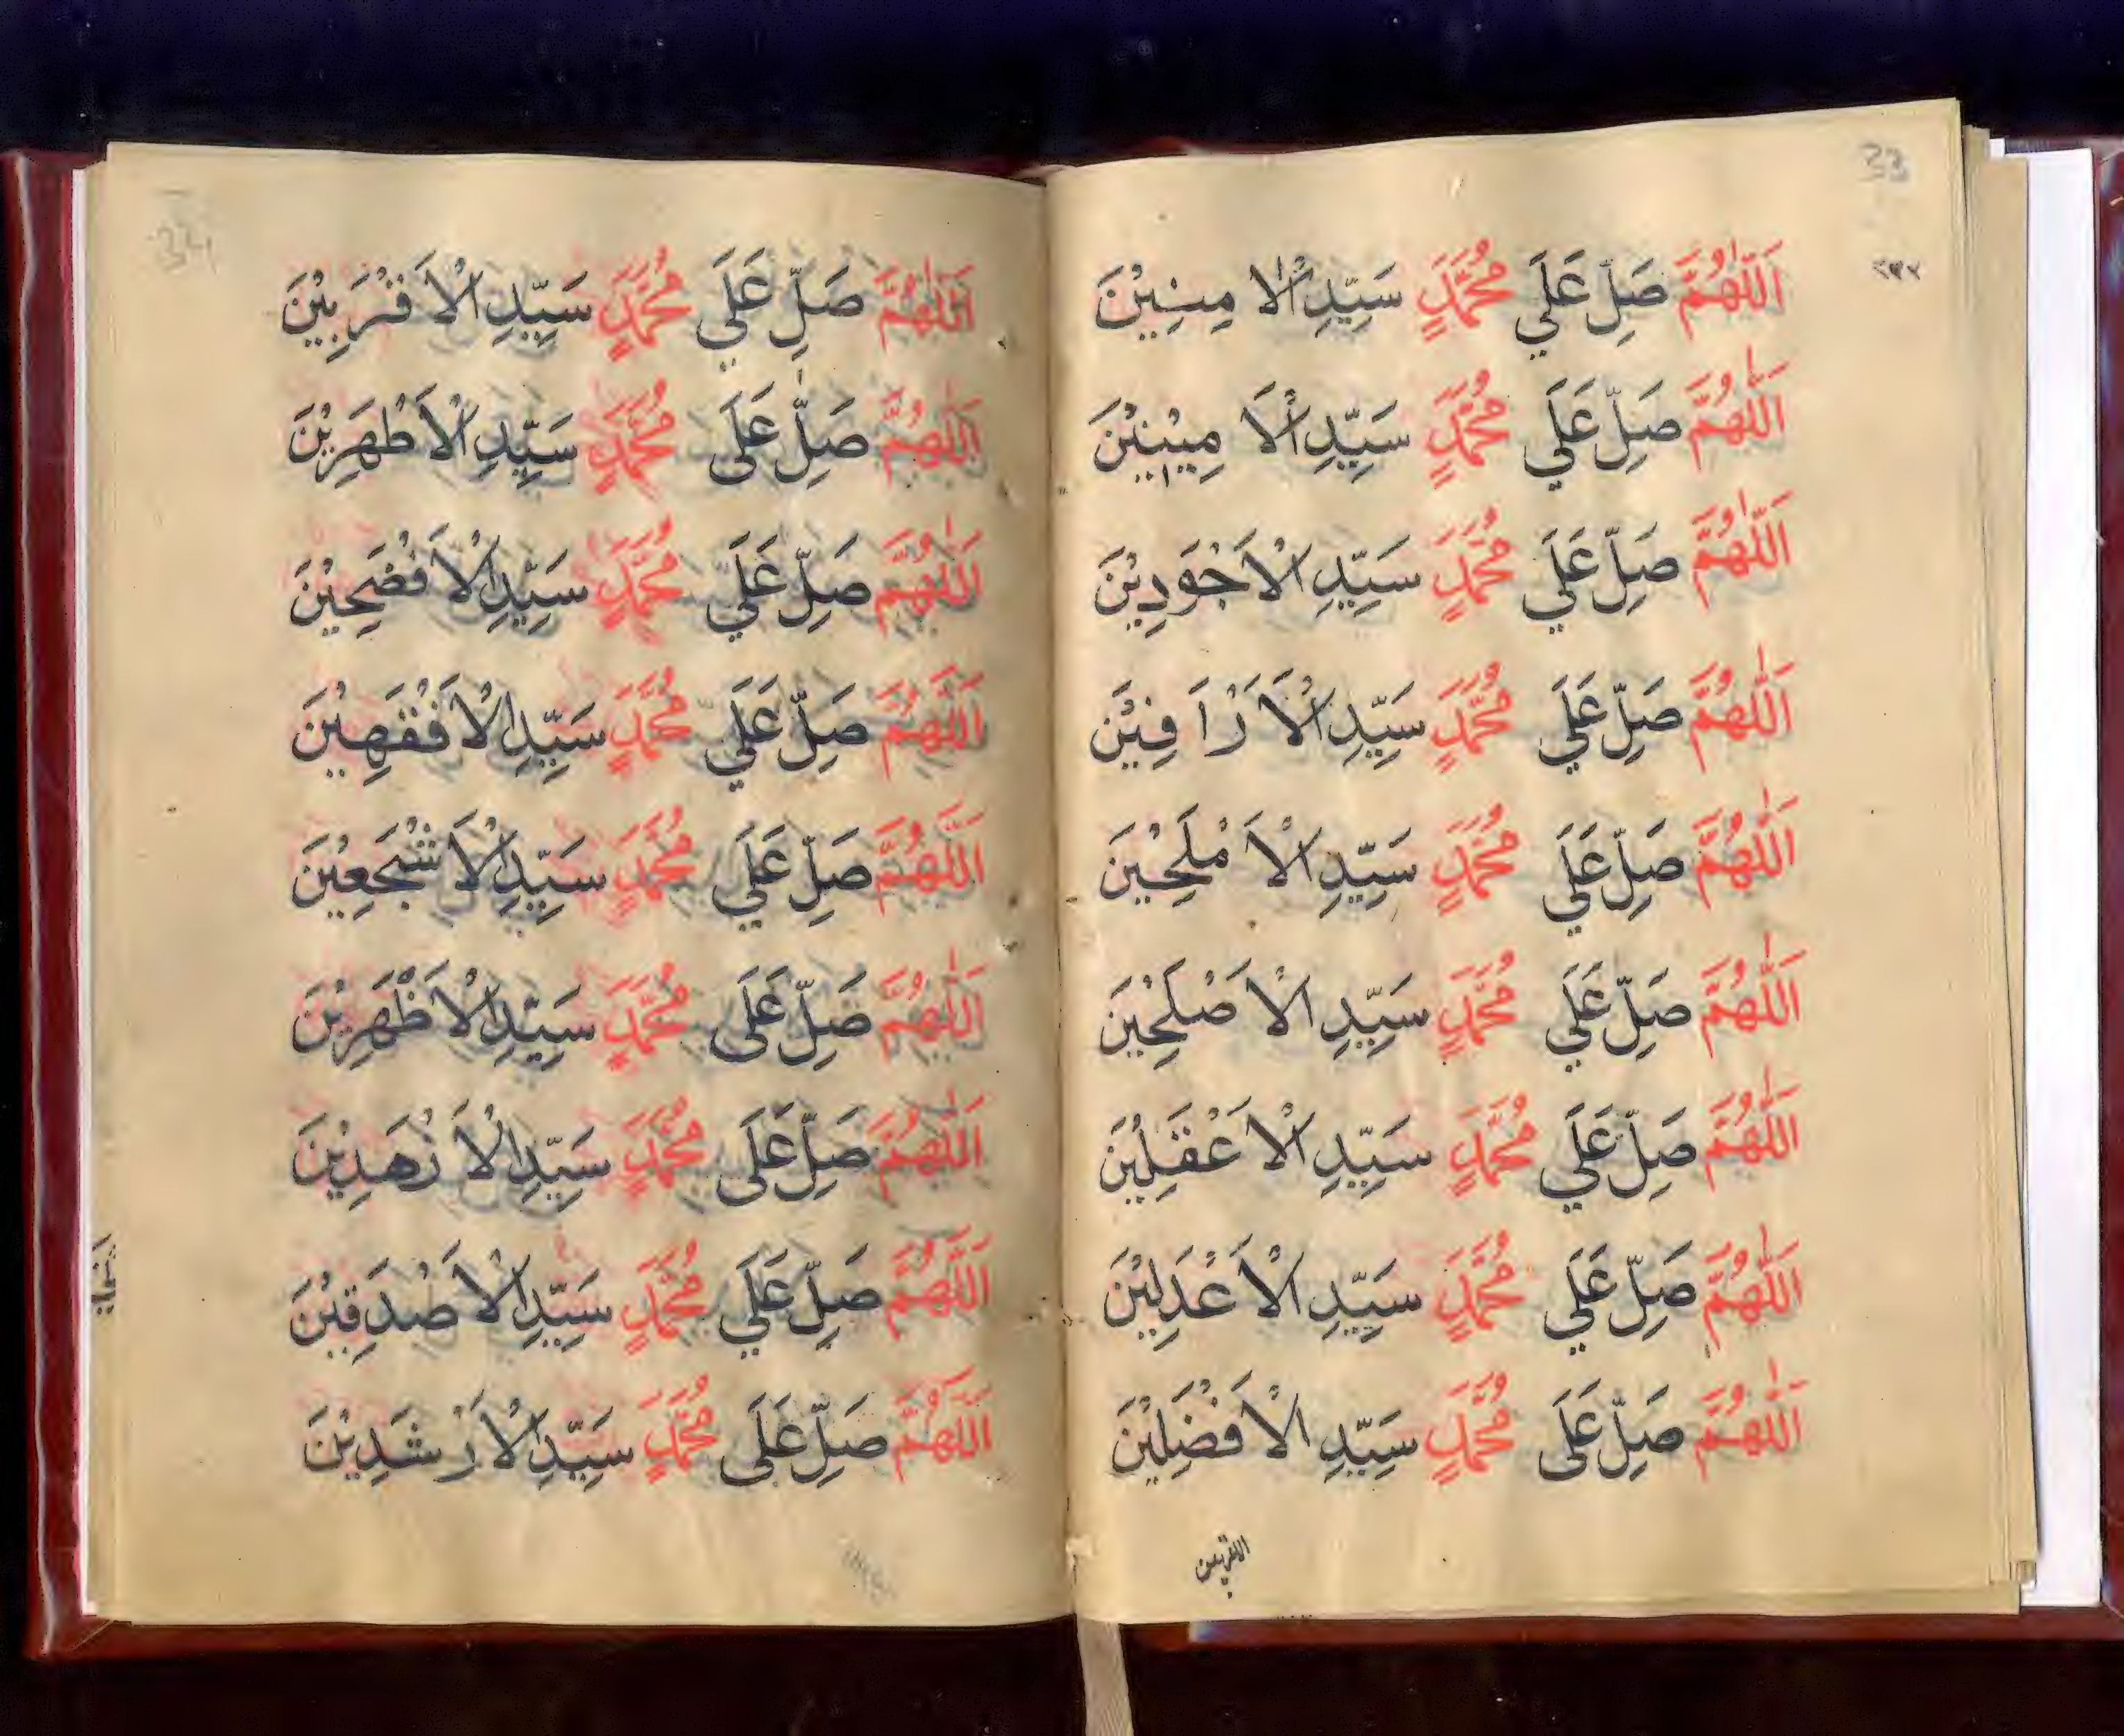 33
اَللّٰهُمَّ صَلِّ عَلَي مُحَمَّدٍ سَيِّدِ الْاٰ مِنِيْنَ
اَللّٰهُمَّ صَلِّ عَلَي مُحَمَّدٍ سَيِّدِ الْاَ مِيْنِيْنَ
اَللّٰهُمَّ صَلِّ عَلَي مُحَمَّدٍ سَيِّدِ الْاَجْوَدِيْنَ
اَللّٰهُمَّ صَلِّ عَلَي مُحَمَّدٍ سَيِّدِ الْاَرْاَفِيْنَ
اَللّٰهُمَّ صَلِّ عَلَي مُحَمَّدٍ سَيِّدِ الْاَمْلَحِيْنَ
اَللّٰهُمَّ صَلِّ عَلَي مُحَمَّدٍ سَيِّدِ الْاَصْلَحِيْنَ
اَللّٰهُمَّ صَلِّ عَلَي مُحَمَّدٍ سَيِّدِ الْاَعْقَلِيْنَ
اَللّٰهُمَّ صَلِّ عَلَي مُحَمَّدٍ سَيِّدِ الْاَعْدَلِيْنَ
اَللّٰهُمَّ صَلِّ عَلَى مُحَمَّدٍ سَيِّدِ الْاَفْضَلِيْنَ
الاقربين
34
اَللّٰهُمَّ صَلِّ عَلَي مُحَمَّدٍ سَيِّدِ الْاَقْرَبِيْنَ
اَللّٰهُمَّ صَلِّ عَلَى مُحَمَّدٍ سَيِّدِ الْاَطْهَرِيْنَ
اَللّٰهُمَّ صَلِّ عَلَي مُحَمَّدٍ سَيِّدِ الْاَفْصَحِيْنَ
اَللّٰهُمَّ صَلِّ عَلَي مُحَمَّدٍ سَيِّدِ الْاَفْقَهِيْنَ
اَللّٰهُمَّ صَلِّ عَلَي مُحَمَّدٍ سَيِّدِ الْاَشْجَعِيْنَ
اَللّٰهُمَّ صَلِّ عَلَى مُحَمَّدٍ سَيِّدِ الْاَظْهَرِيْنَ
اَللّٰهُمَّ صَلِّ عَلَى مُحَمَّدٍ سَيِّدِ الْاَزْهَدِيْنَ
اَللّٰهُمَّ صَلِّ عَلَي مُحَمَّدٍ سَيِّدِ الْاَصْدَقِيْنَ
اَللّٰهُمَّ صَلِّ عَلَى مُحَمَّدٍ سَيِّدِ الْاَرْشَدِيْنَ